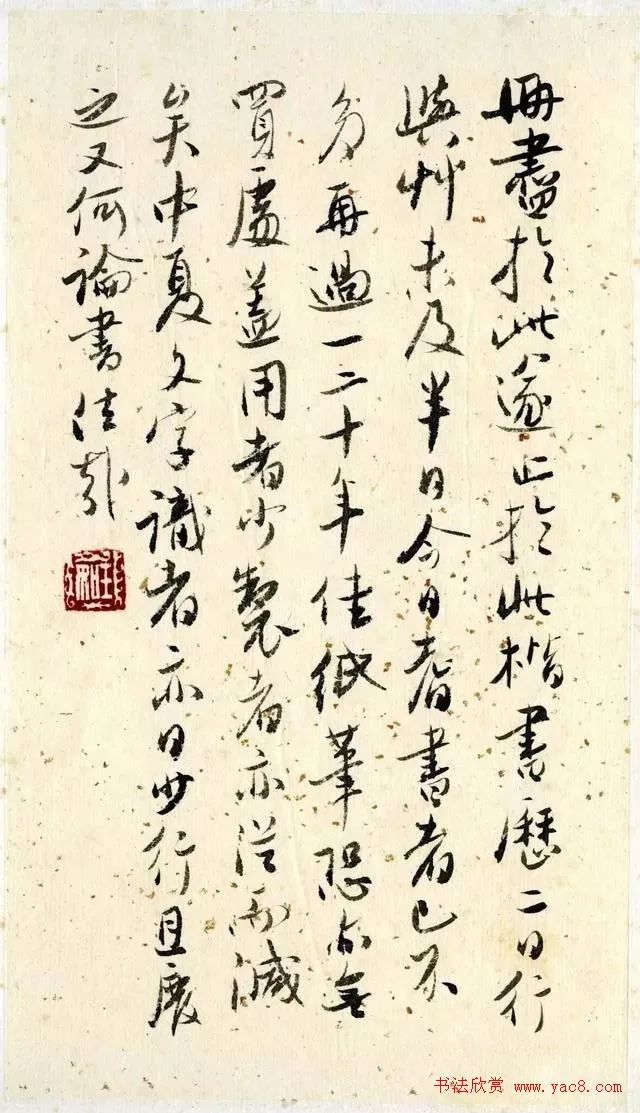 冊盡於此遂止於此楷書歷二日行
與艸未及半日今日耆書者已不
多再過一二十年佳紙筆恐亦無
買處蓋用者少製者亦從而減
矣中夏文字識者亦日少行且廢
之又何論書法哉
书法欣赏 www.yac8.com